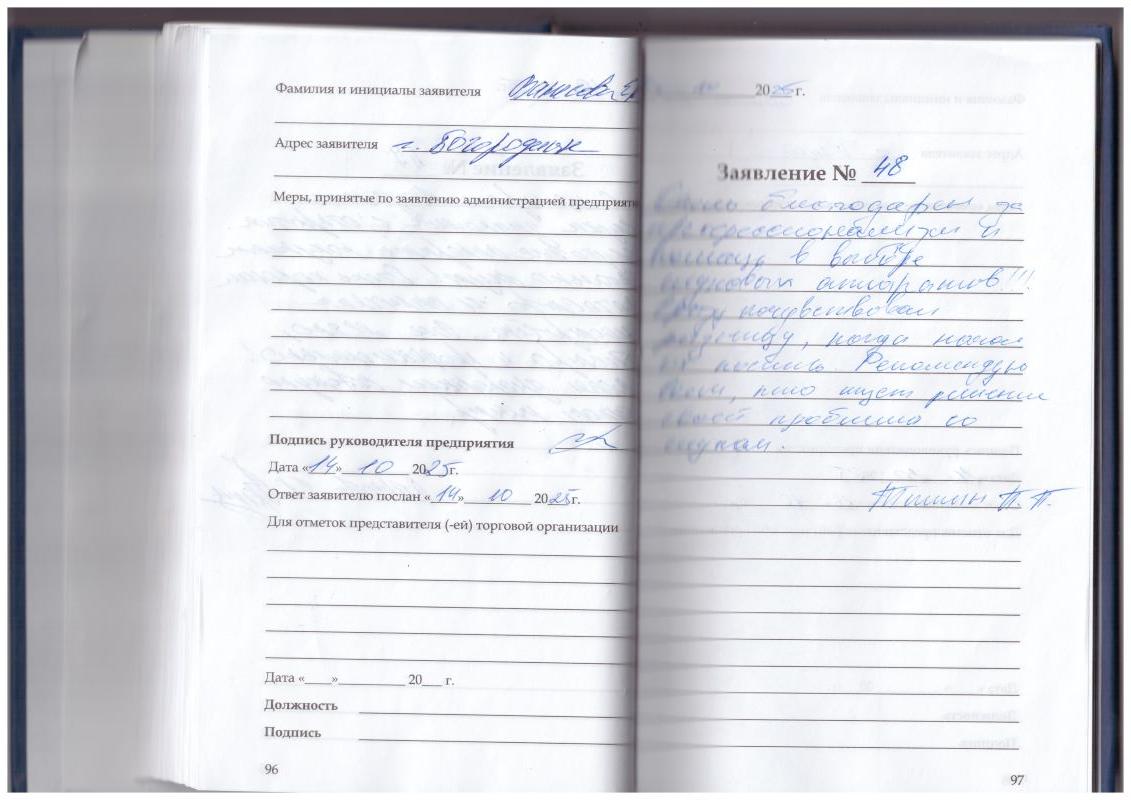 Фамилия и инициалы заявителя
Адрес заявителя г. Богородицк
Меры, принятые по заявлению администрацией предприяти
Подпись руководителя предприятия
Дата «14» 10 2025г.
Ответ заявителю послан «14» 10 2025г.
Для отметок представителя (-ей) торговой организации
Дата «____»__________ 20___ г.
Должность
Подпись
96
2025 г.
Заявление № 48
Очень благодарен за
профессионализм и
помощь в выборе
слуховых аппаратов!!!
Сразу почувствовал
разницу, когда начал
их носить. Рекомендую
всем, кто ищет решение
своей проблемы со
слухом.
97